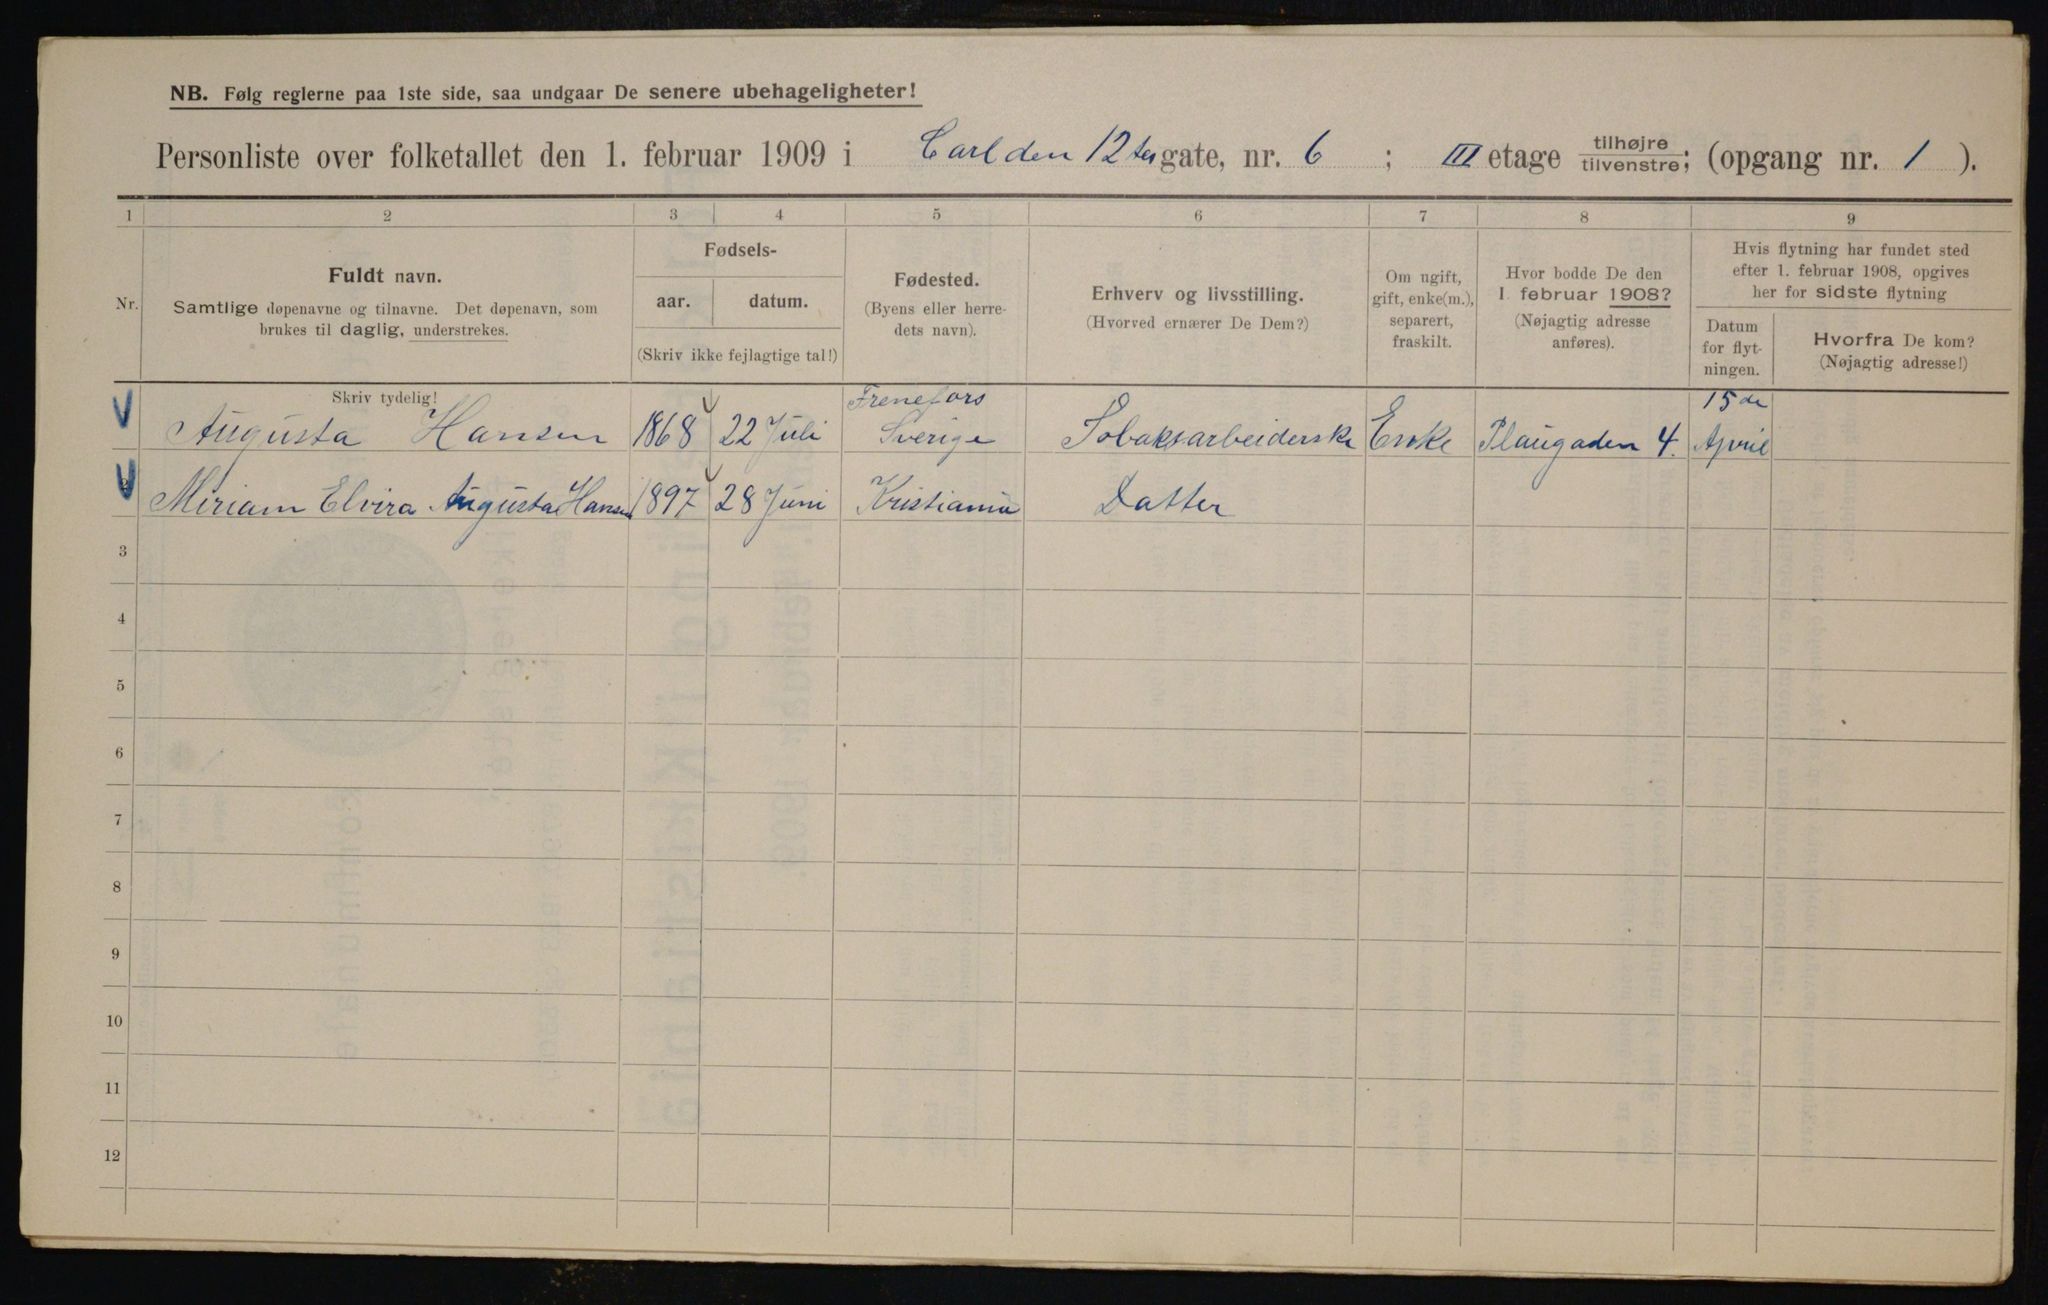 NB. Følg reglerne paa 1ste side, saa undgaar De senere ubehageligheter!
Personliste over folketallet den 1. februar 1909 i Carl den 12tes gate, nr. 6 ; III etage tilhøjre / tilvenstre; (opgang nr. 1 ).
1 2 3 4 5 6 7 8 9
Nr.
Fuldt navn.
Samtlige døpenavne og tilnavne. Det døpenavn, som
brukes til daglig, understrekes.
Fødsels-
aar. datum.
(Skriv ikke fejlagtige tal!)
Fødested.
(Byens eller herre-
dets navn).
Erhverv og livsstilling.
(Hvorved ernærer De Dem?)
Om ugift,
gift, enke(m.),
separert,
fraskilt.
Hvor bodde De den
1. februar 1908?
(Nøjagtig adresse
anføres).
Hvis flytning har fundet sted
efter 1. februar 1908, opgives
her for sidste flytning
Datum
for flyt-
ningen.
Hvorfra De kom?
(Nøjagtig adresse!)
Skriv tydelig!
Frenefors 15de
Augusta Hansen 1868 22 Juli Sverige Tobaksarbeiderske Enke Plaugaden 4. April
2 Miriam Elvira Augusta Hansen 1897 28 Juni Kristiania Datter
3
4
5
6
7
8
9
10
11
12